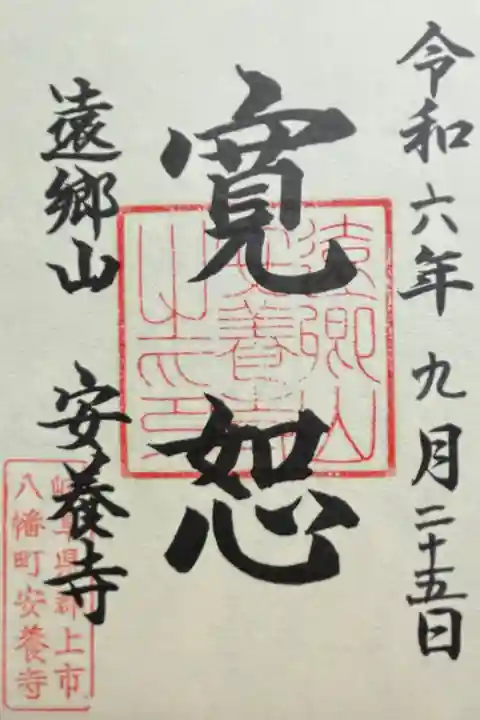 令和六年九月二十五日
寛恕
遠郷山
安養寺
之印
遠郷山 安養寺
岐阜県郡上市
八幡町安養寺